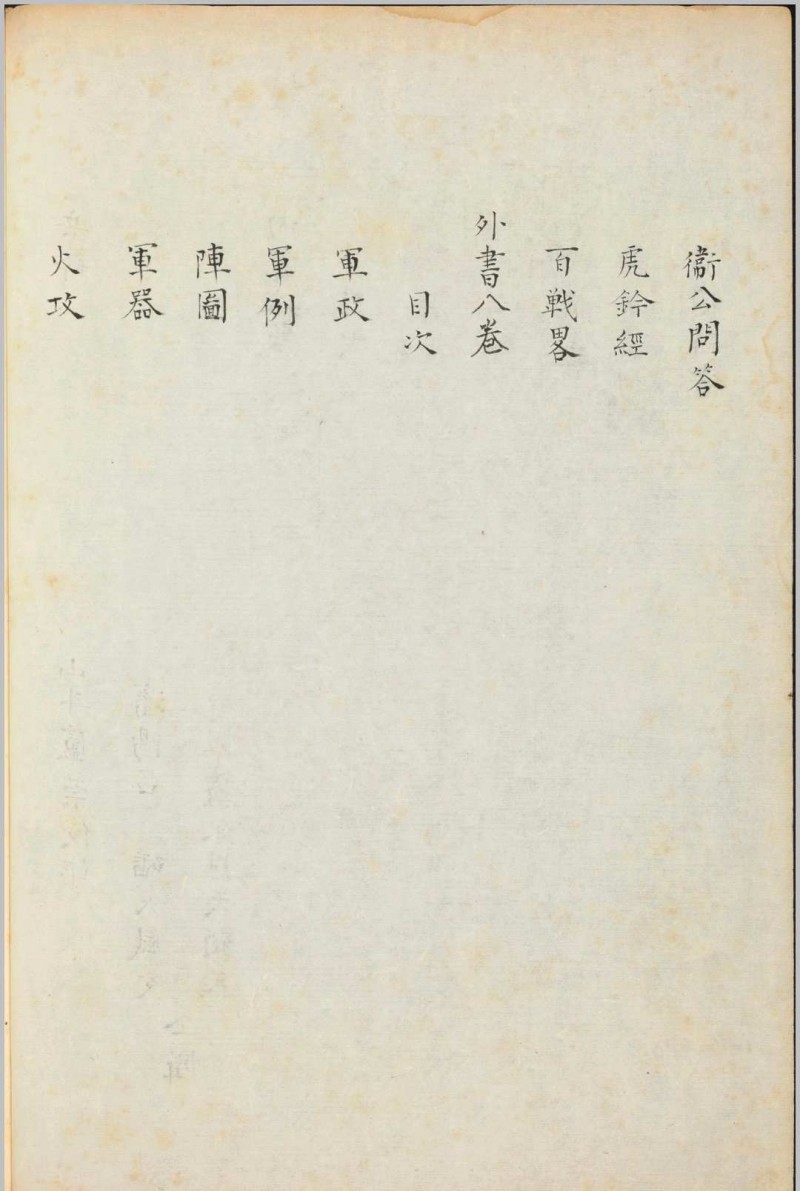 衞公問答
虎鈐經
百戰畧
外書八卷
目次
軍政
軍例
陣圖
軍器
火攻